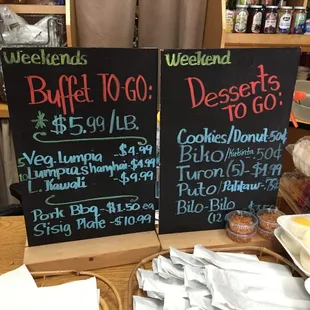 Weekends
Buffet TO-GO:
* $5.99/LB.
Veg. Lumpia - $4.99
Lumpia Shanghai - $4.99
L. Kawali - $9.99
Pork Bbq - $1.50
Sisig Plate - $10.99
Weekend
Desserts
TO GO:
Cookies/Donut 50¢
Biko/Kutsinta 50¢
Turon (5) - $3.
Puto/Palitaw - $3
Bilo-Bilo
(12